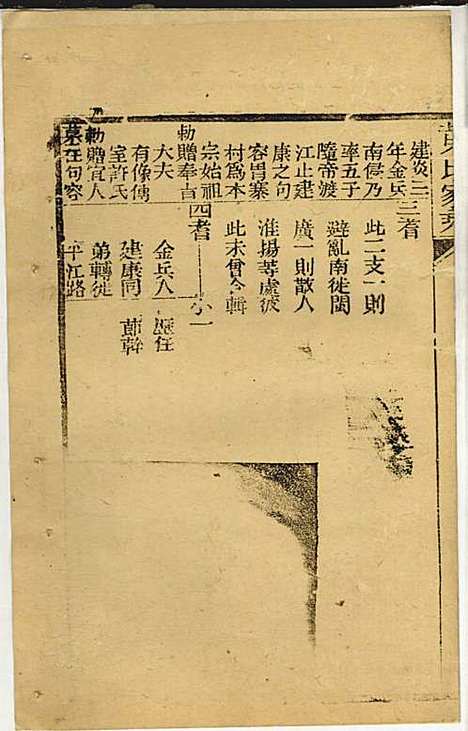 黃氏家乘
建炎三
年金兵
南侵乃
率五子
隨帝渡
江止建
康之句
容胄寨
村爲本
宗始祖
勅贈奉直
大夫
有像傳
室許氏
勅贈宜人
墓在句容
三耆
此二支一則
避亂南徙閩
廣一則散人
淮揚等處彼
此未曾合輯
四耆
金兵入
建康同
弟轉徙
平江路
小一
歷任
節幹